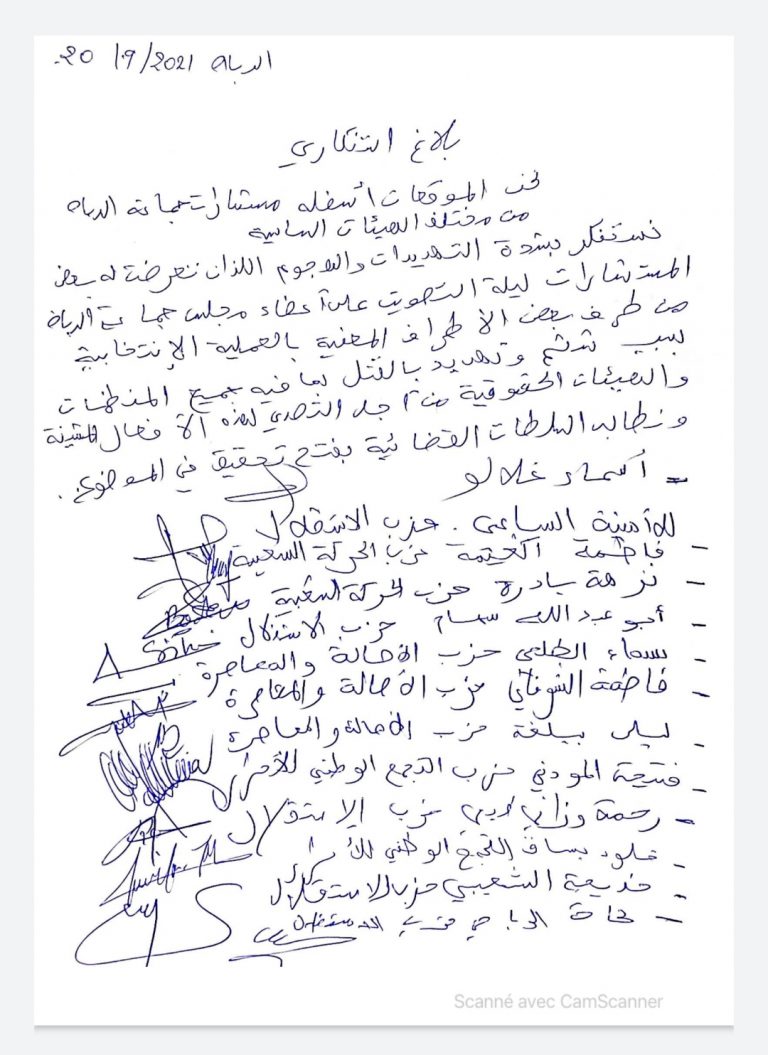 الرباط 20/9/2021
بلاغ استنكاري
نحن الموقعات أسفله مستشارات جماعة الرباط
من مختلف الهيئات السياسية
نستنكر بشدة التهديدات والهجوم اللذان تعرضة له بعض
المستشارات ليلة التصويت على أعضاء مجلس جماعة الرباط
من طرف بعض الأطراف المعنية بالعملية الإنتخابية
بسبب وتهديد بالقتل بما فيه جميع المنظمات
والهيئات الحقوقية من أجل التصدي لهذه الأفعال المشينة
ونطالب السلطات القضائية بفتح تحقيق في الموضوع.
- أسماء غلالو
أمينة الساعي . حزب الاستقلال
- فاطمة حزب الحركة الشعبية
- نزهة بادرة حزب الحركة الشعبية
- أبو عبد الله سهام حزب الاستقلال
- بسماء الطلعي حزب الأصالة والمعاصرة
- فاطمة حزب الأصالة والمعاصرة
- ليلى حزب الأصالة والمعاصرة
- فتيحة المودني حزب التجمع الوطني للأحرار
- رحمة وزاني حزب الاستقلال
- خلود بساق التجمع الوطني للأحرار
- خديجة الشعيبي حزب الاستقلال
- نجاة حزب الاستقلال
Scanné avec CamScanner